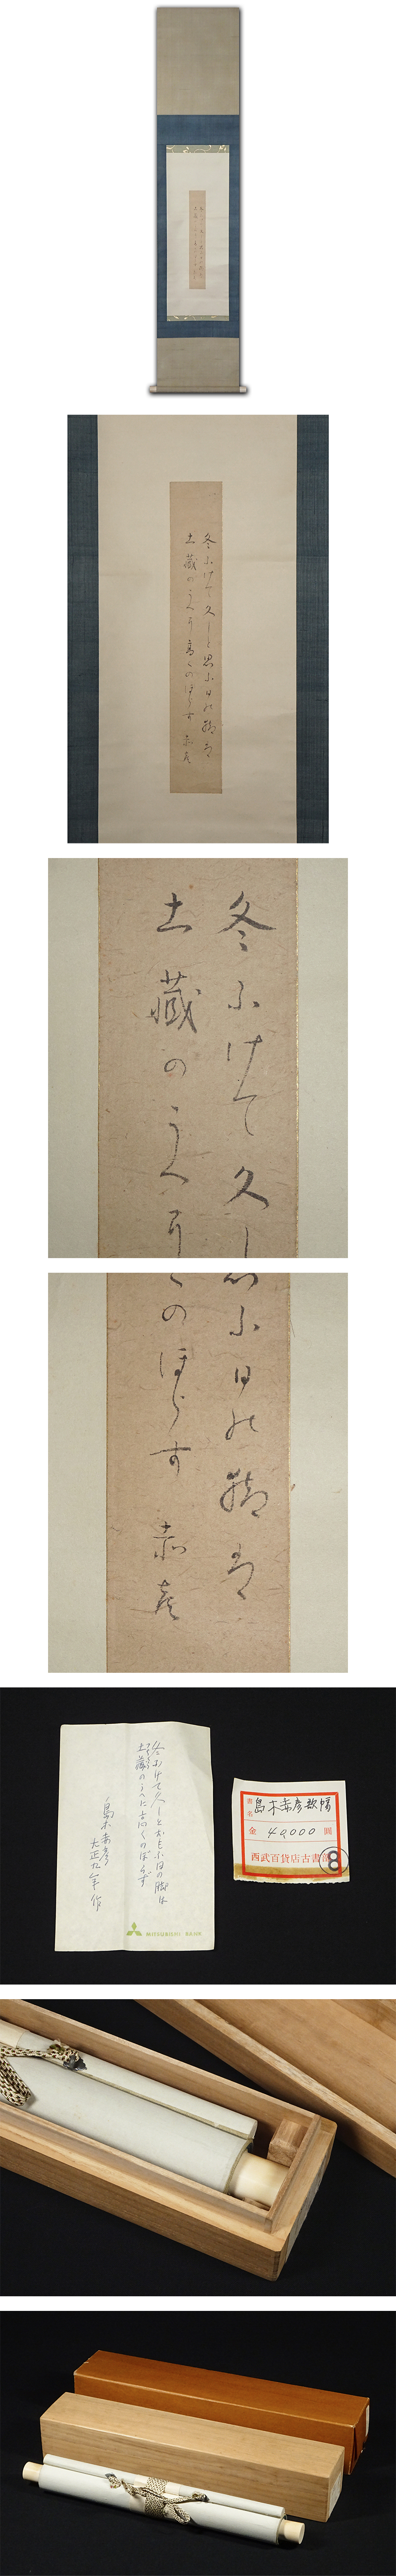 冬ふけて久しと思ふ日の脚は
土蔵のうへに高くのぼらず 赤彦
冬ふけて久し
土蔵のうへに
思ふ日の脚は
くのほらす 赤彦
冬ふけて久しとおもふ日の脚は
土蔵のうへに高くのぼらず
島木赤彦
大正九年作
MITSUBISHI BANK
書名 島木赤彦歌幅
金 40000 圓
西武百貨店古書部
8